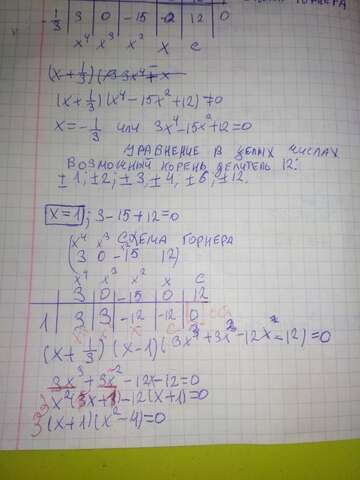 СХЕМА ГОРНЕРА
-1/3 | 3 | 0 | -15 | 0 | 12 | 0
x⁴ x³ x² x c
(x+1/3)(x⁴-15x²+12)≠0
x=-1/3 или 3x⁴-15x²+12=0
УРАВНЕНИЕ В ЦЕЛЫХ ЧИСЛАХ
ВОЗМОЖНЫЙ КОРЕНЬ ДЕЛИТЕЛЬ 12:
±1; ±2; ±3, ±4, ±6, ±12.
x=1; 3-15+12=0
x⁴ x³ СХЕМА ГОРНЕРА
(3 0 -15 12)
x⁴ x³ x² x c
3 | 0 | -15 | 0 | 12
1 | 3 | 3 | -12 | -12 | 0
(x+1/3)(x-1)(3x³+3x²-12x-12)=0
3x³+3x²-12x-12=0
x²(3x+3)-12(x+1)=0
3(x+1)(x²-4)=0